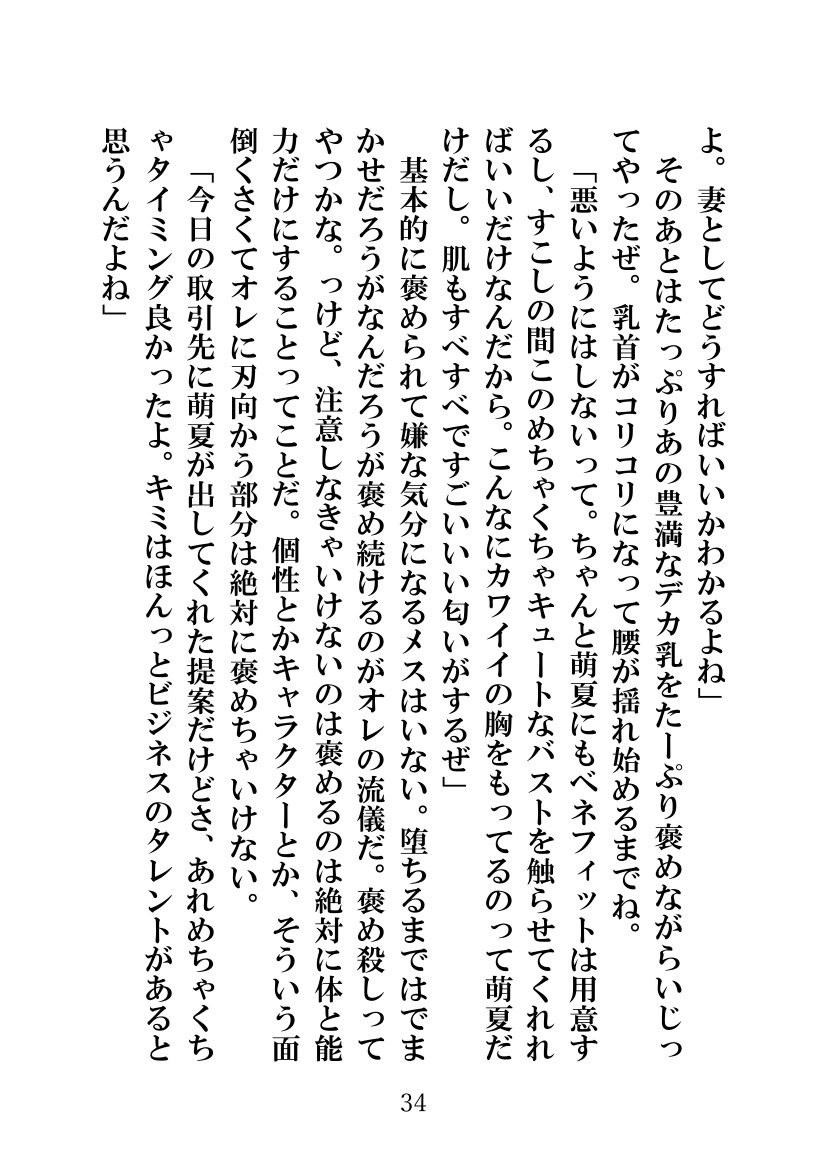 よ。妻としてどうすればいいかわかるよね」
そのあとはたっぷりあの豊満なデカ乳をたーぷり褒めながらいじっ
てやったぜ。乳首がコリコリになって腰が揺れ始めるまでね。
「悪いようにはしないって。ちゃんと萌夏にもベネフィットは用意す
るし、すこしの間このめちゃくちゃキュートなバストを触らせてくれれ
ばいいだけなんだから。こんなにカワイイの胸をもってるのって萌夏だ
けだし。肌もすべすべですごいいい匂いがするぜ」
基本的に褒められて嫌な気分になるメスはいない。堕ちるまではでま
かせだろうがなんだろうが褒め続けるのがオレの流儀だ。褒め殺しって
やつかな。っけど、注意しなきゃいけないのは褒めるのは絶対に体と能
力だけにすることってことだ。個性とかキャラクターとか、そういう面
倒くさくてオレに刃向かう部分は絶対に褒めちゃいけない。
「今日の取引先に萌夏が出してくれた提案だけどさ、あれめちゃくち
ゃタイミング良かったよ。キミはほんっとビジネスのタレントがあると
思うんだよね」
34